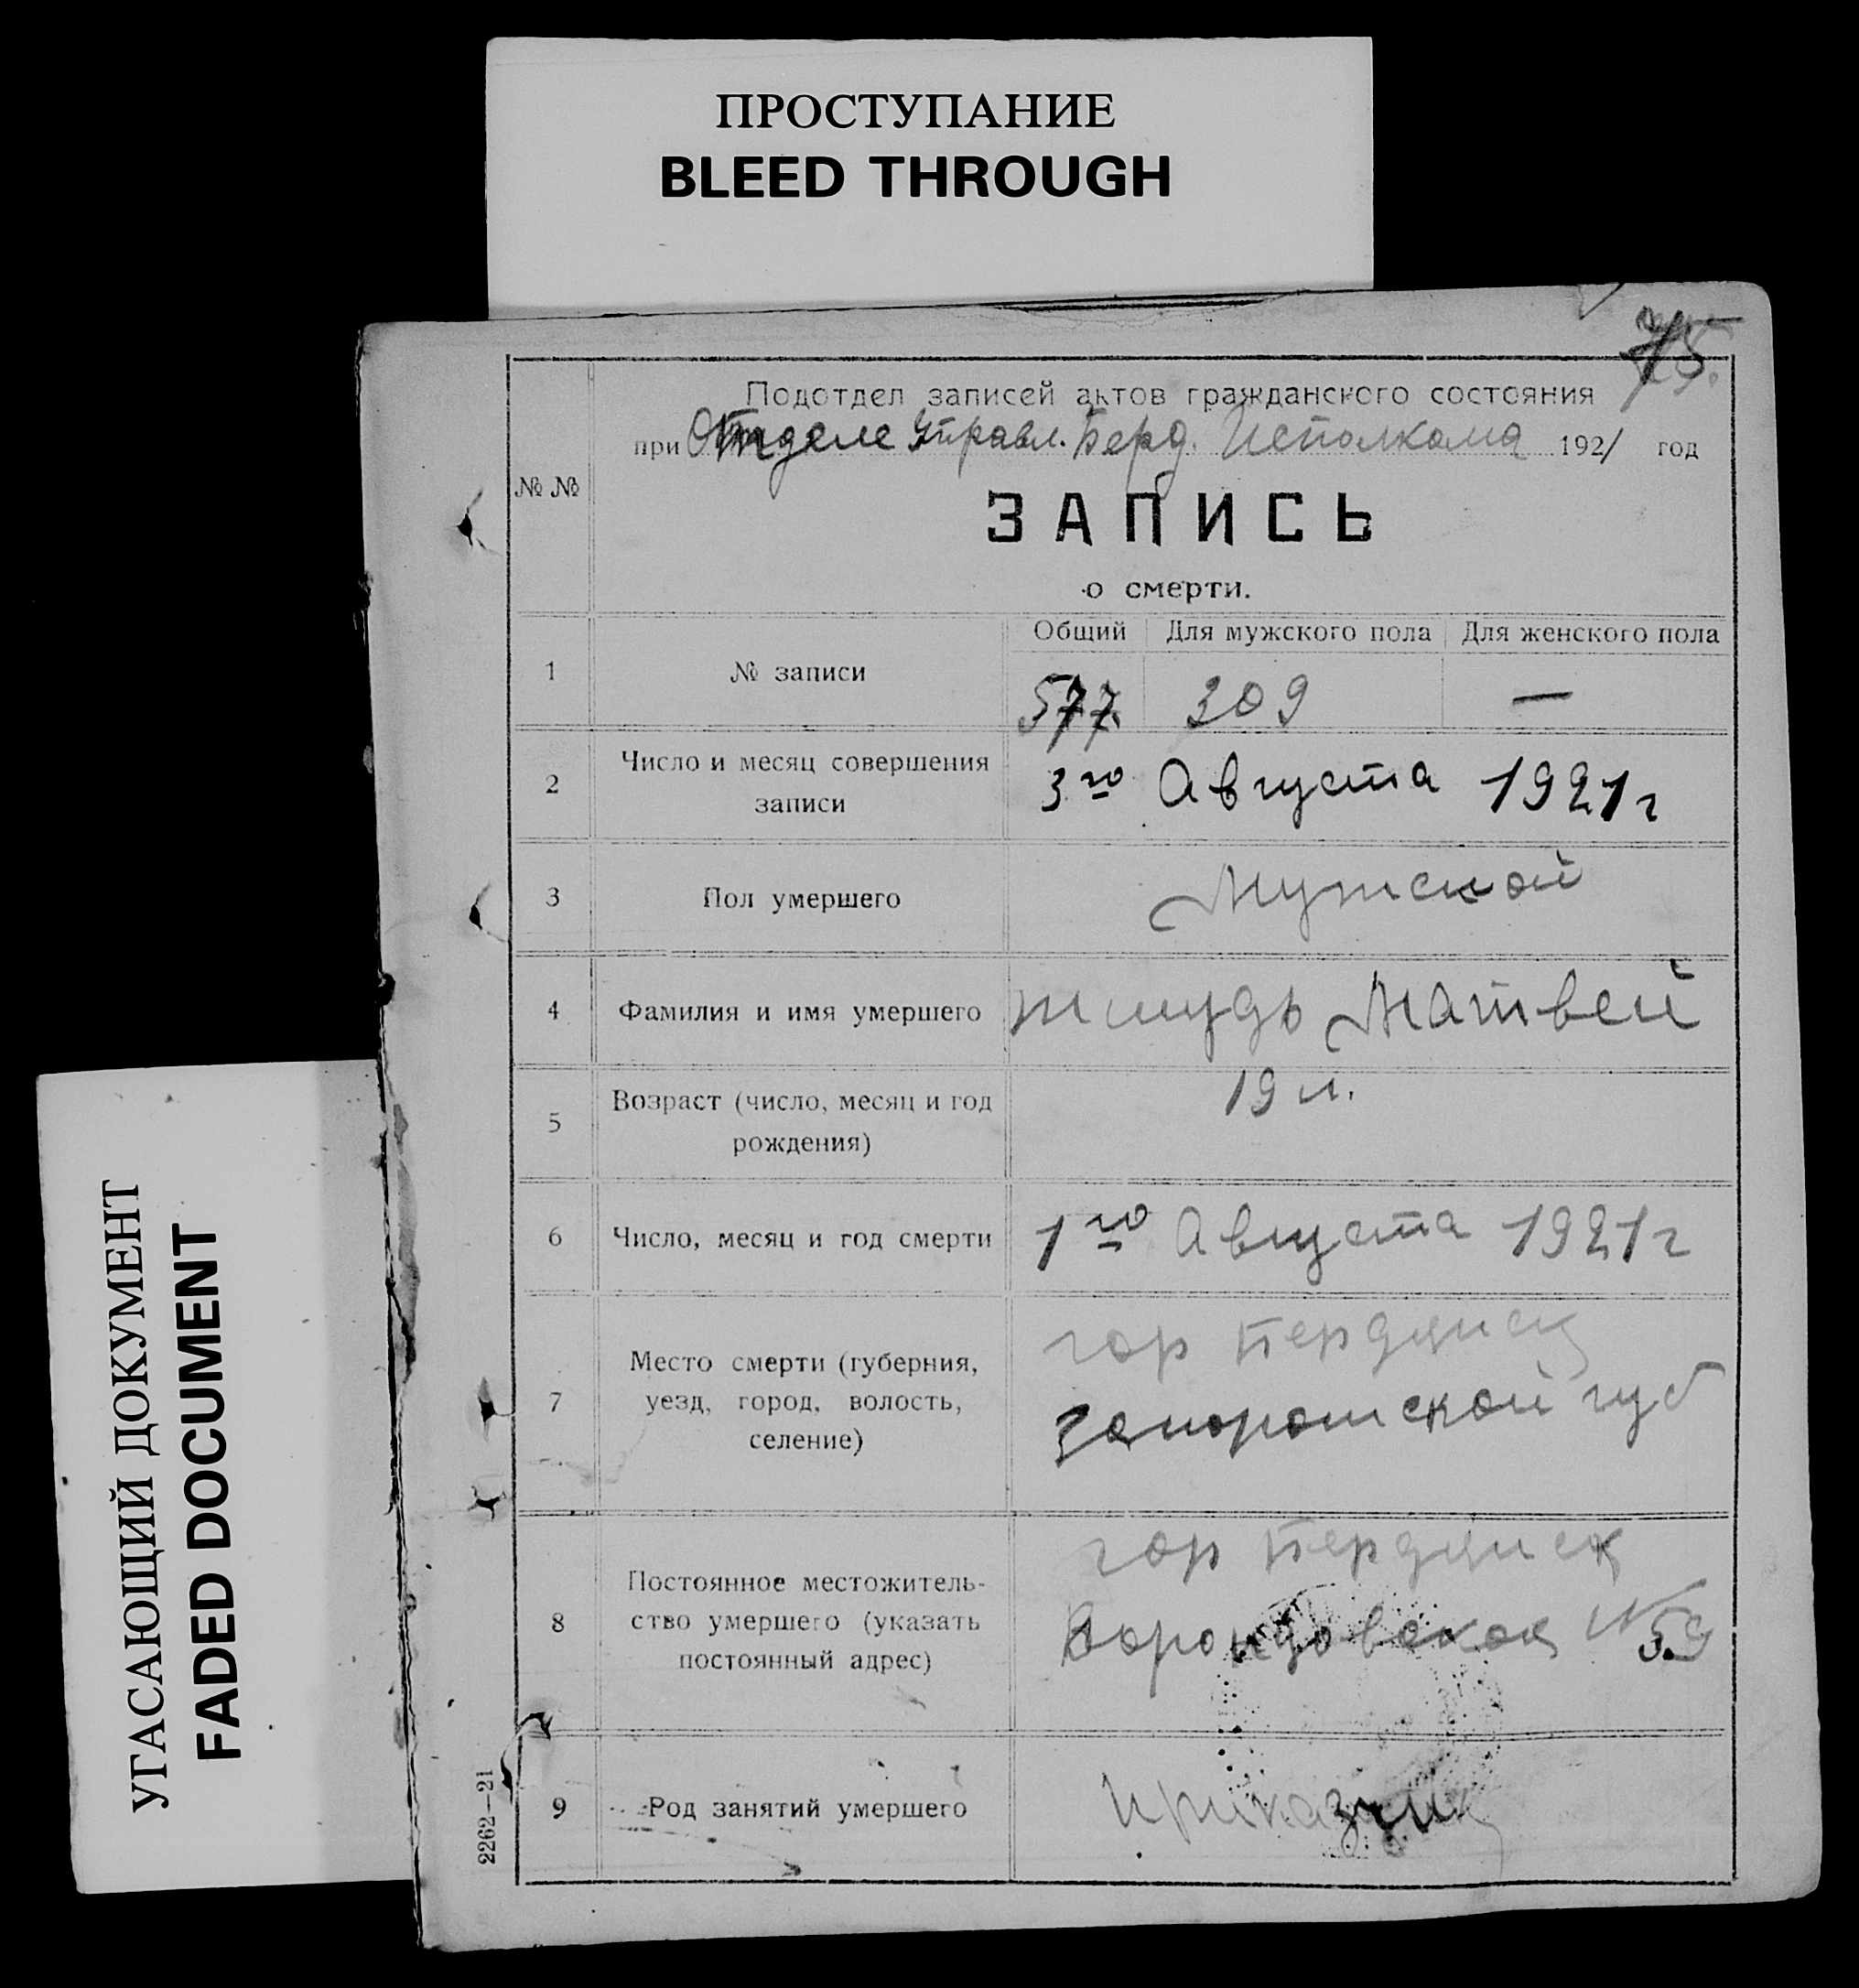 ПРОСТУПАНИЕ
BLEED THROUGH
УГАСАЮЩИЙ ДОКУМЕНТ
FADED DOCUMENT
75.
Подотдел записей актов гражданского состояния
при Отделе Управл. Берд. Исполкома 1921 год
№ №
ЗАПИСЬ
о смерти.
Общий Для мужского пола Для женского пола
1 № записи 577. 309 —
2 Число и месяц совершения
записи
3го Августа 1921 г
3 Пол умершего Мужской
4 Фамилия и имя умершего Матвей
5 Возраст (число, месяц и год
рождения)
19 л.
6 Число, месяц и год смерти 1го Августа 1921 г
7 Место смерти (губерния,
уезд, город, волость,
селение)
гор Бердянск
Запорожской губ
8 Постоянное местожитель-
ство умершего (указать
постоянный адрес)
гор Бердянск
Воронцовская № 59
9 Род занятий умершего Приказчик
2262—21